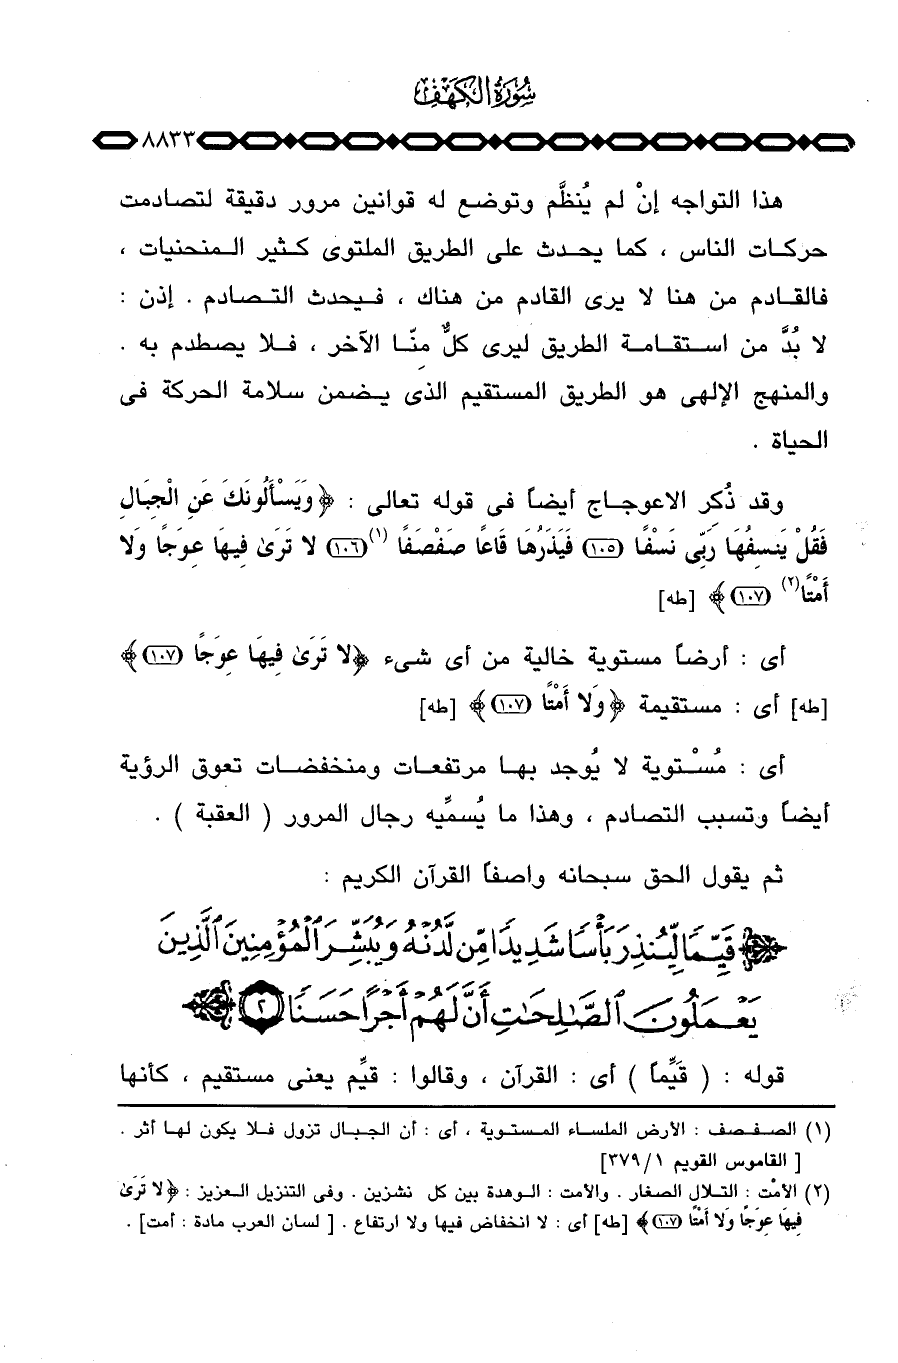 سورة الكهف
٨٨٣٣
هذا التواجه إنْ لم يُنظَّم وتوضع له قوانين مرور دقيقة لتصادمت
حركات الناس ، كما يحدث على الطريق الملتوى كثير المنحنيات ،
فالقادم من هنا لا يرى القادم من هناك ، فيحدث التصادم . إذن :
لا بُدَّ من استقامة الطريق ليرى كلٌّ مِنّا الآخر ، فلا يصطدم به .
والمنهج الإلهى هو الطريق المستقيم الذى يضمن سلامة الحركة فى
الحياة .
وقد ذُكر الاعوجاج أيضاً فى قوله تعالى : ﴿ وَيَسْأَلُونَكَ عَنِ الْجِبَالِ
فَقُلْ يَنسِفُهَا رَبِّى نَسْفًا (١٠٥) فَيَذَرُهَا قَاعًا صَفْصَفًا (١) (١٠٦) لا تَرَىٰ فِيهَا عِوَجًا وَلا
أَمْتًا (٢) (١٠٧) ﴾ [طه]
أى : أرضاً مستوية خالية من أى شىء ﴿ لا تَرَىٰ فِيهَا عِوَجًا (١٠٧) ﴾
[طه] أى : مستقيمة ﴿ وَلا أَمْتًا (١٠٧) ﴾ [طه]
أى : مُسْتوية لا يُوجد بها مرتفعات ومنخفضات تعوق الرؤية
أيضاً وتسبب التصادم ، وهذا ما يُسمِّيه رجال المرور ( العقبة ) .
ثم يقول الحق سبحانه واصفاً القرآن الكريم :
﴿ قَيِّمًا لِّيُنذِرَ بَأْسًا شَدِيدًا مِّن لَّدُنْهُ وَيُبَشِّرَ ٱلْمُؤْمِنِينَ ٱلَّذِينَ
يَعْمَلُونَ ٱلصَّٰلِحَٰتِ أَنَّ لَهُمْ أَجْرًا حَسَنًا ٢ ﴾
قوله : ( قَيِّماً ) أى : القرآن ، وقالوا : قيِّم يعنى مستقيم ، كأنها
(١) الصفصف : الأرض الملساء المستوية ، أى : أن الجبال تزول فلا يكون لها أثر .
[ القاموس القويم ٣٧٩/١]
(٢) الأمْت : التلال الصغار . والأمت : الوهدة بين كل نشزين . وفى التنزيل العزيز : ﴿ لا تَرَىٰ
فِيهَا عِوَجًا وَلا أَمْتًا (١٠٧) ﴾ [طه] أى : لا انخفاض فيها ولا ارتفاع . [ لسان العرب مادة : أمت] .